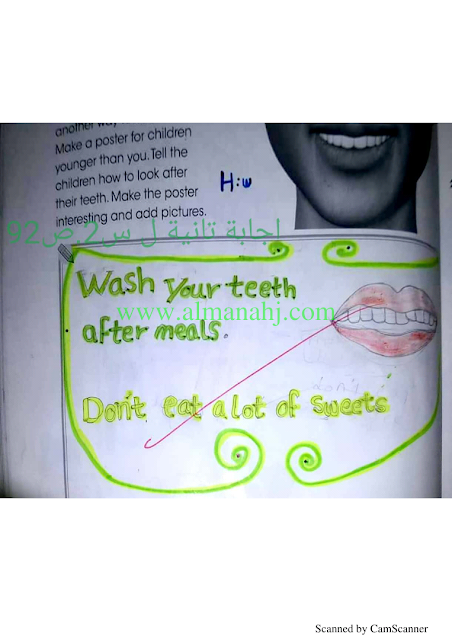 another way
Make a poster for children
younger than you. Tell the
children how to look after
their teeth. Make the poster
interesting and add pictures.
H:w
إجابة تانية ل س2 ص92
Wash your teeth
www.almanahj.com
after meals.
Don't eat a lot of sweets
Scanned by CamScanner